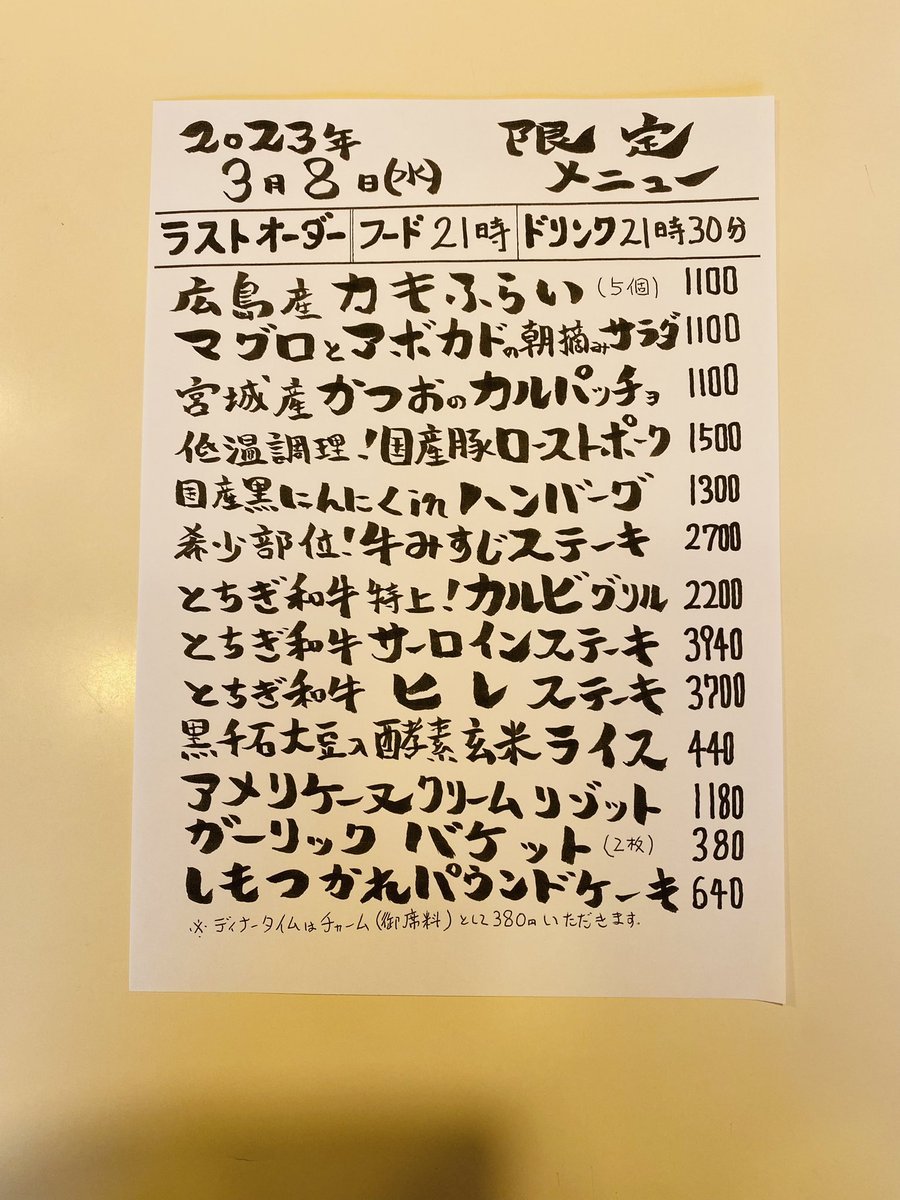 2023年
3月8日(水)
限定
メニュー
ラストオーダー フード21時 ドリンク21時30分
広島産カキふらい(5個) 1100
マグロとアボカドの朝摘みサラダ 1100
宮城産かつおのカルパッチョ 1100
低温調理!国産豚ローストポーク 1500
国産黒にんにくinハンバーグ 1300
希少部位!牛みすじステーキ 2700
とちぎ和牛特上!カルビグリル 2200
とちぎ和牛サーロインステーキ 3940
とちぎ和牛ヒレステーキ 3700
黒千石大豆入酵素玄米ライス 440
アメリケーヌクリームリゾット 1180
ガーリックバケット(2枚) 380
しもつかれパウンドケーキ 640
※ディナータイムはチャーム(御席料)として380円いただきます。